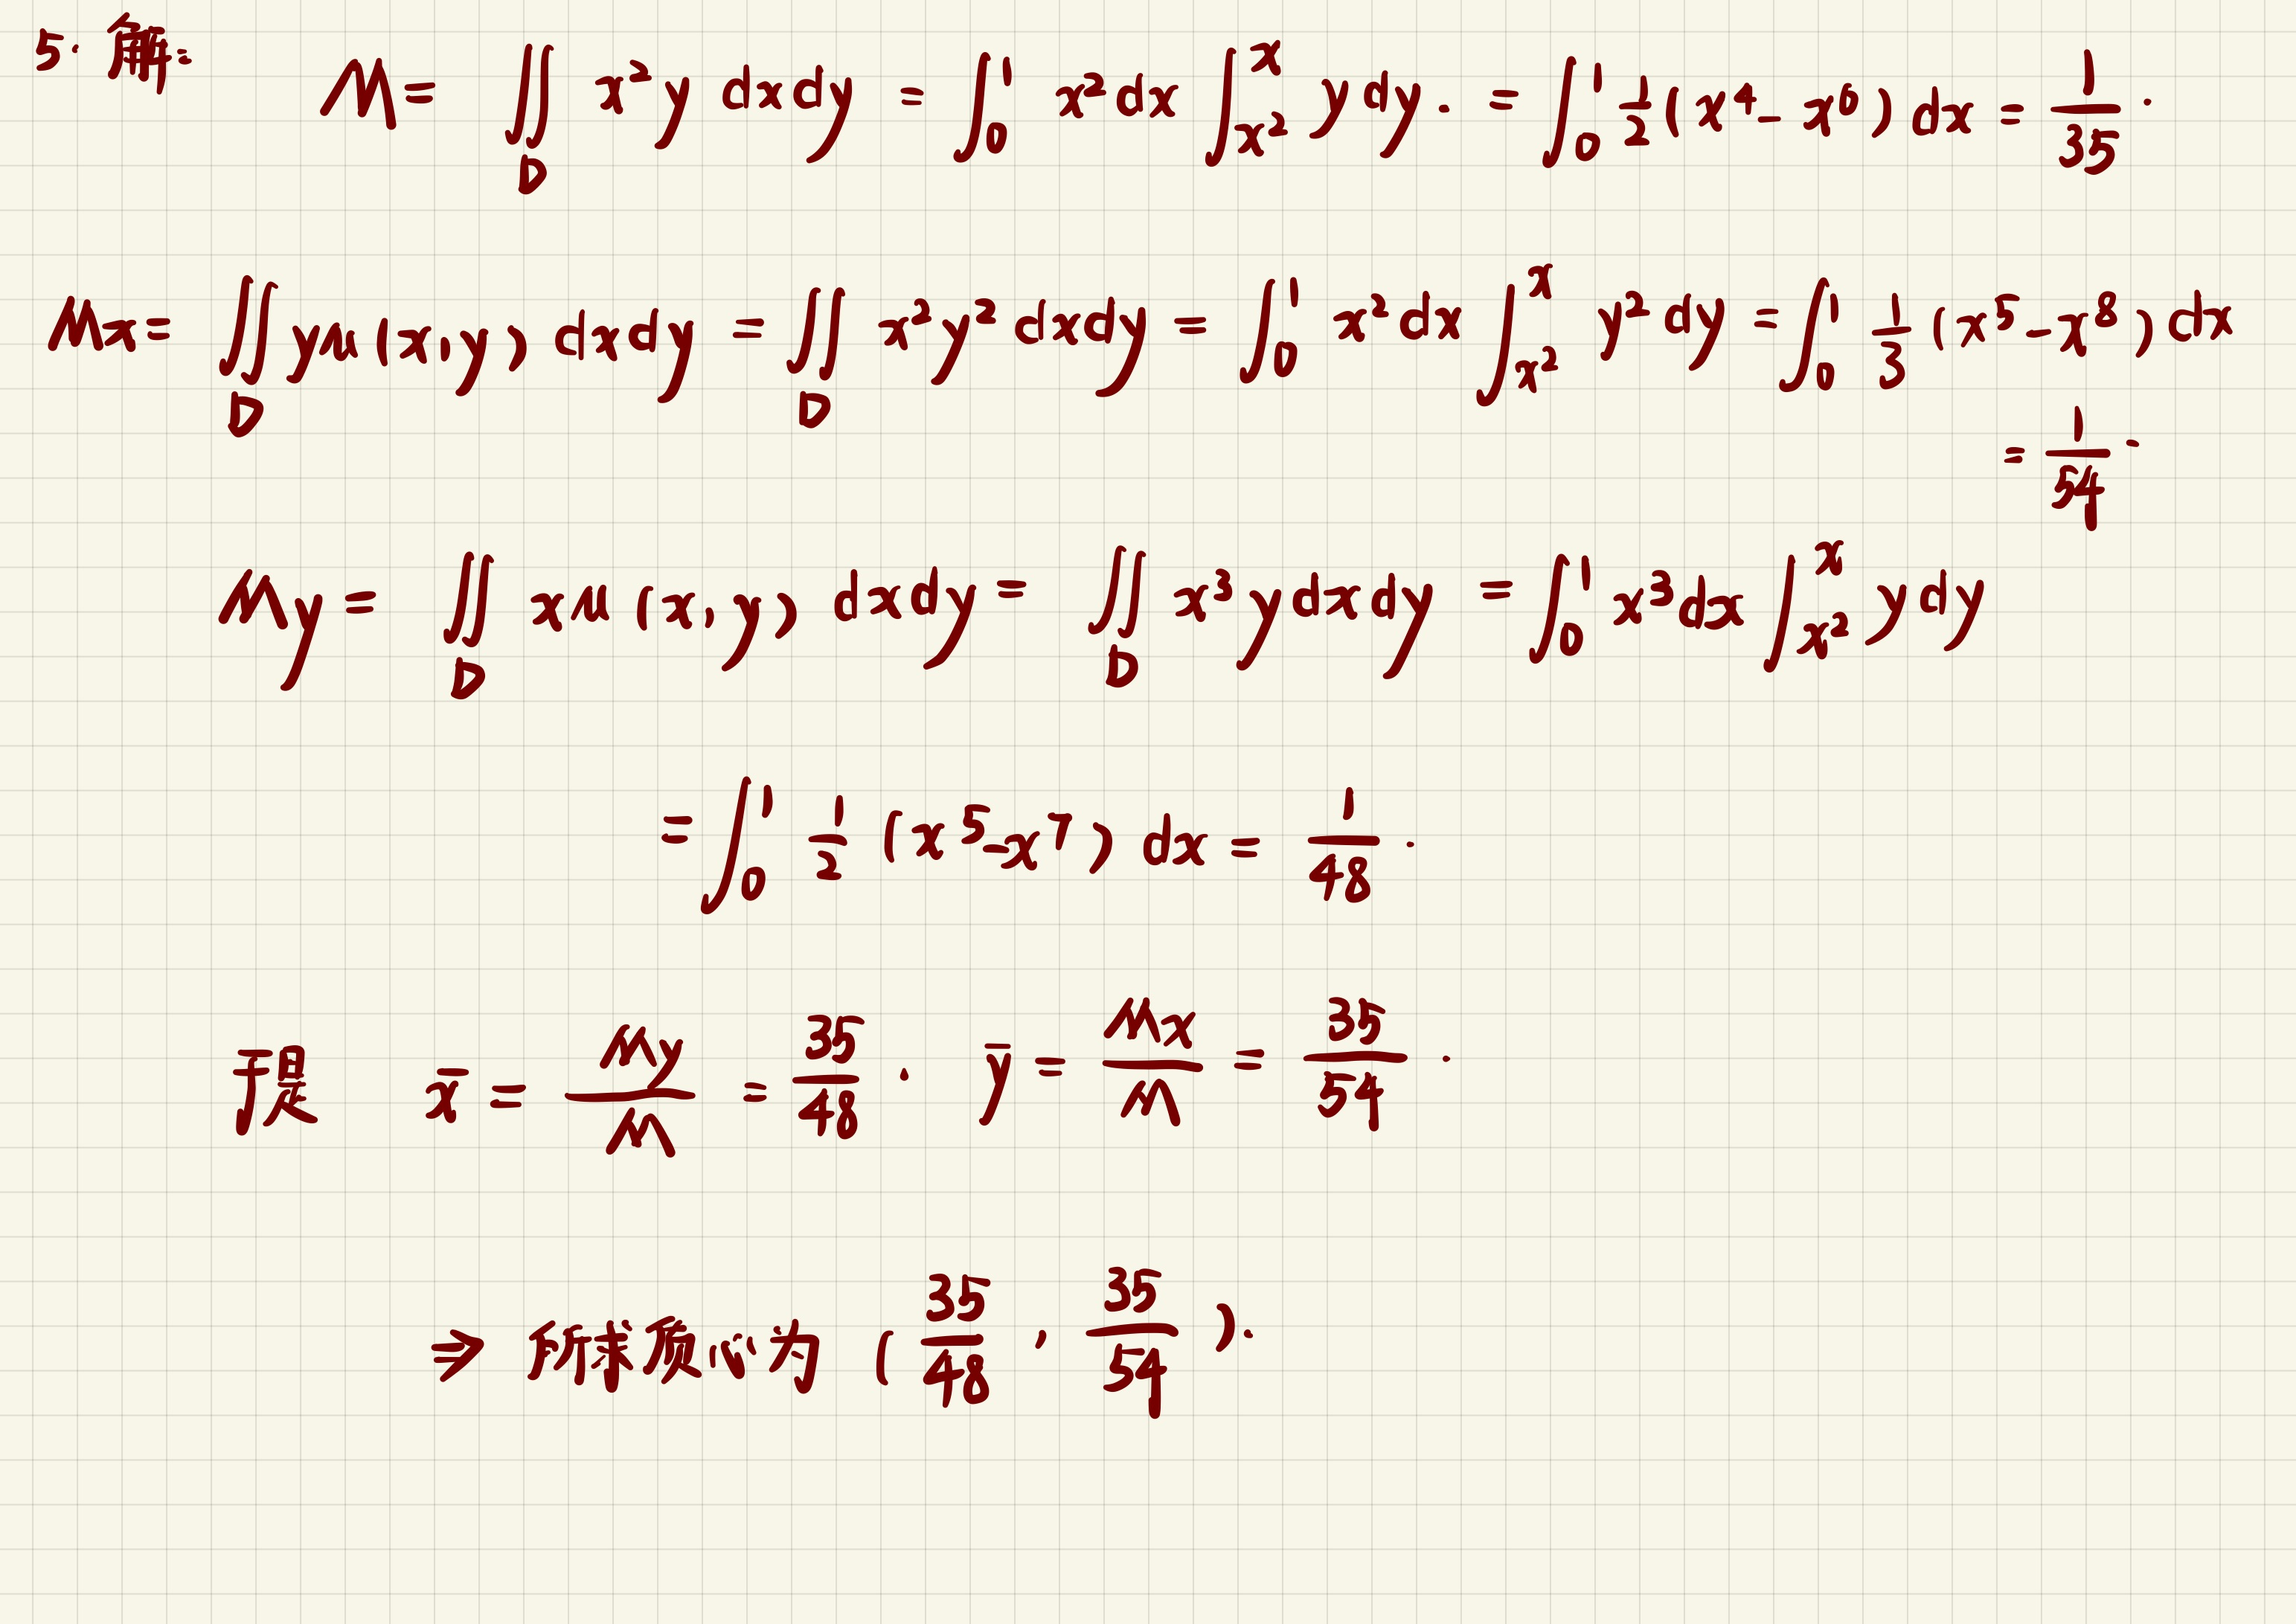 5. 解:
M = ∬_D x²y dxdy = ∫₀¹ x²dx ∫_{x²}^{x} ydy. = ∫₀¹ 1/2 (x⁴ - x⁶) dx = 1/35.
Mx = ∬_D yμ(x,y) dxdy = ∬_D x²y² dxdy = ∫₀¹ x²dx ∫_{x²}^{x} y²dy = ∫₀¹ 1/3 (x⁵ - x⁸) dx
= 1/54.
My = ∬_D xμ(x,y) dxdy = ∬_D x³ydxdy = ∫₀¹ x³dx ∫_{x²}^{x} ydy
= ∫₀¹ 1/2 (x⁵ - x⁷) dx = 1/48.
于是 x̄ = My/M = 35/48. ȳ = Mx/M = 35/54.
⇒ 所求质心为 (35/48, 35/54).